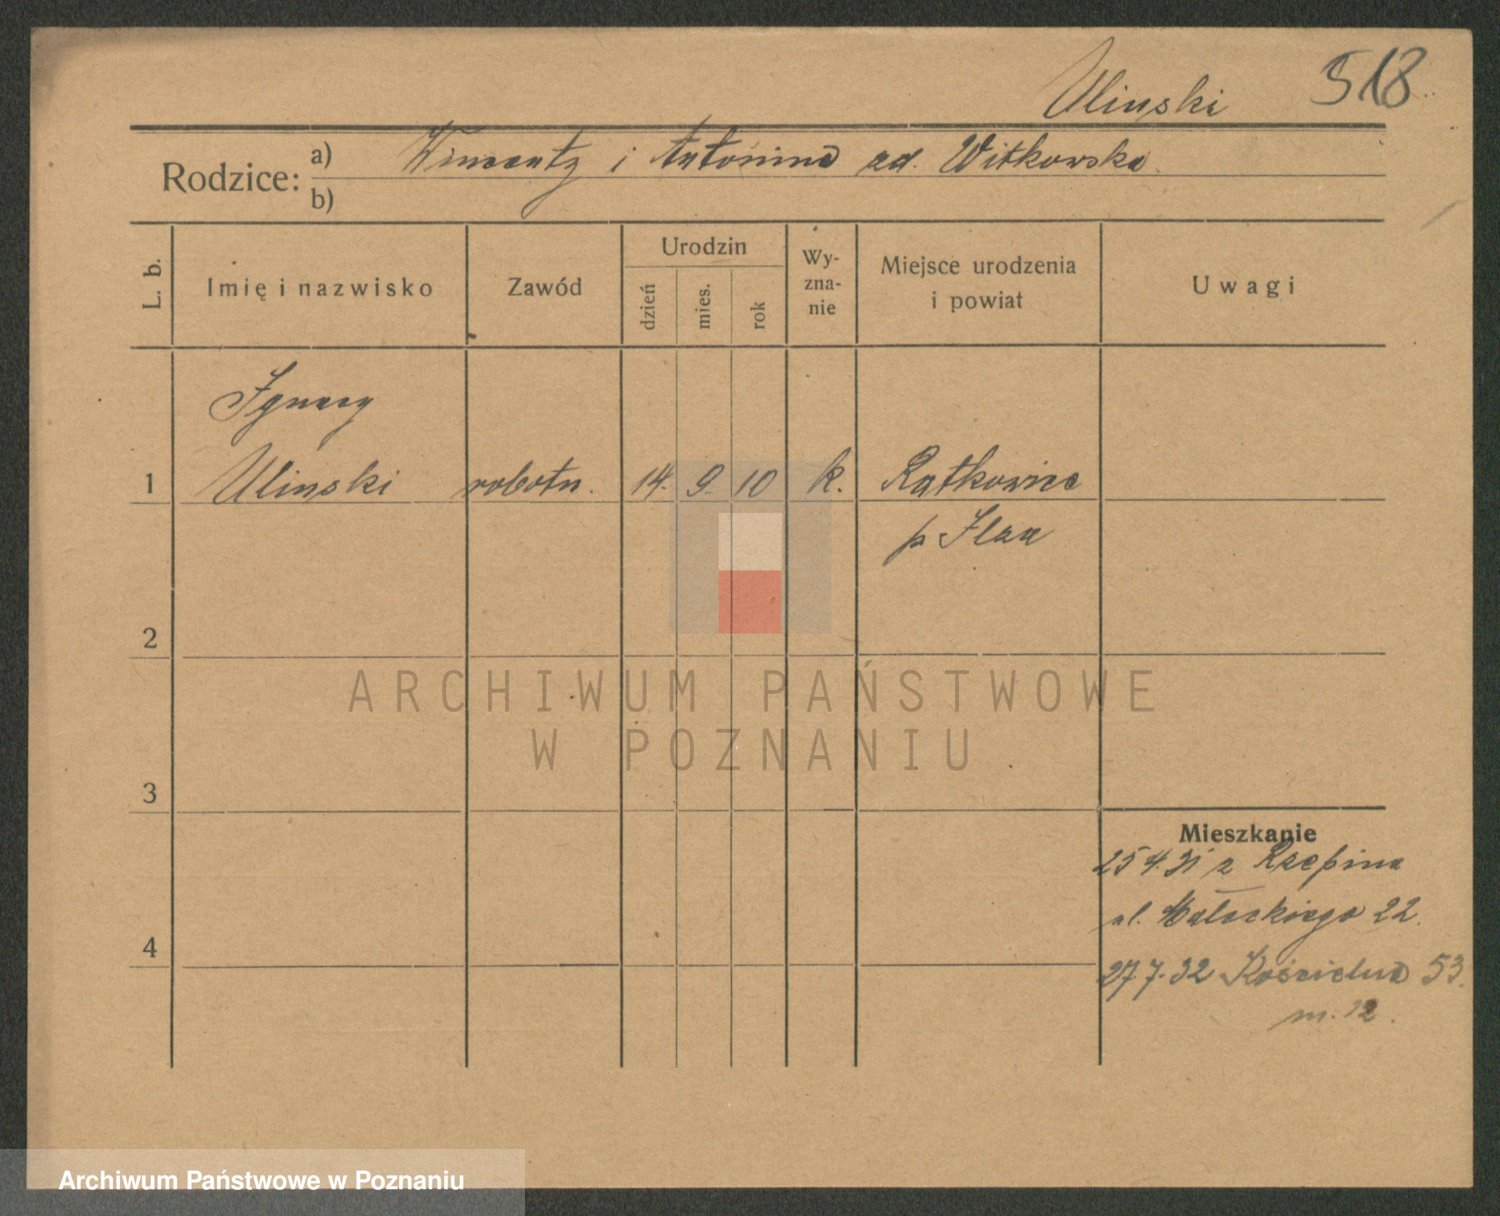 Ulinski 518
Rodzice: a) Wincenty i Antonina zd. Witkowska.
b)
L. b. Imię i nazwisko Zawód Urodzin Wy-zna-nie Miejsce urodzenia i powiat Uwagi
dzień mies. rok
Ignacy
1 Ulinski robotn. 14. 9. 10 k. Ratkowice
p Iłża
2
ARCHIWUM PAŃSTWOWE
W POZNANIU
3
Mieszkanie
25 4. 31 z Rzepina
ul. Małeckiego 22.
4
27.7.32 Kościelna 53.
m. 12.
Archiwum Państwowe w Poznaniu